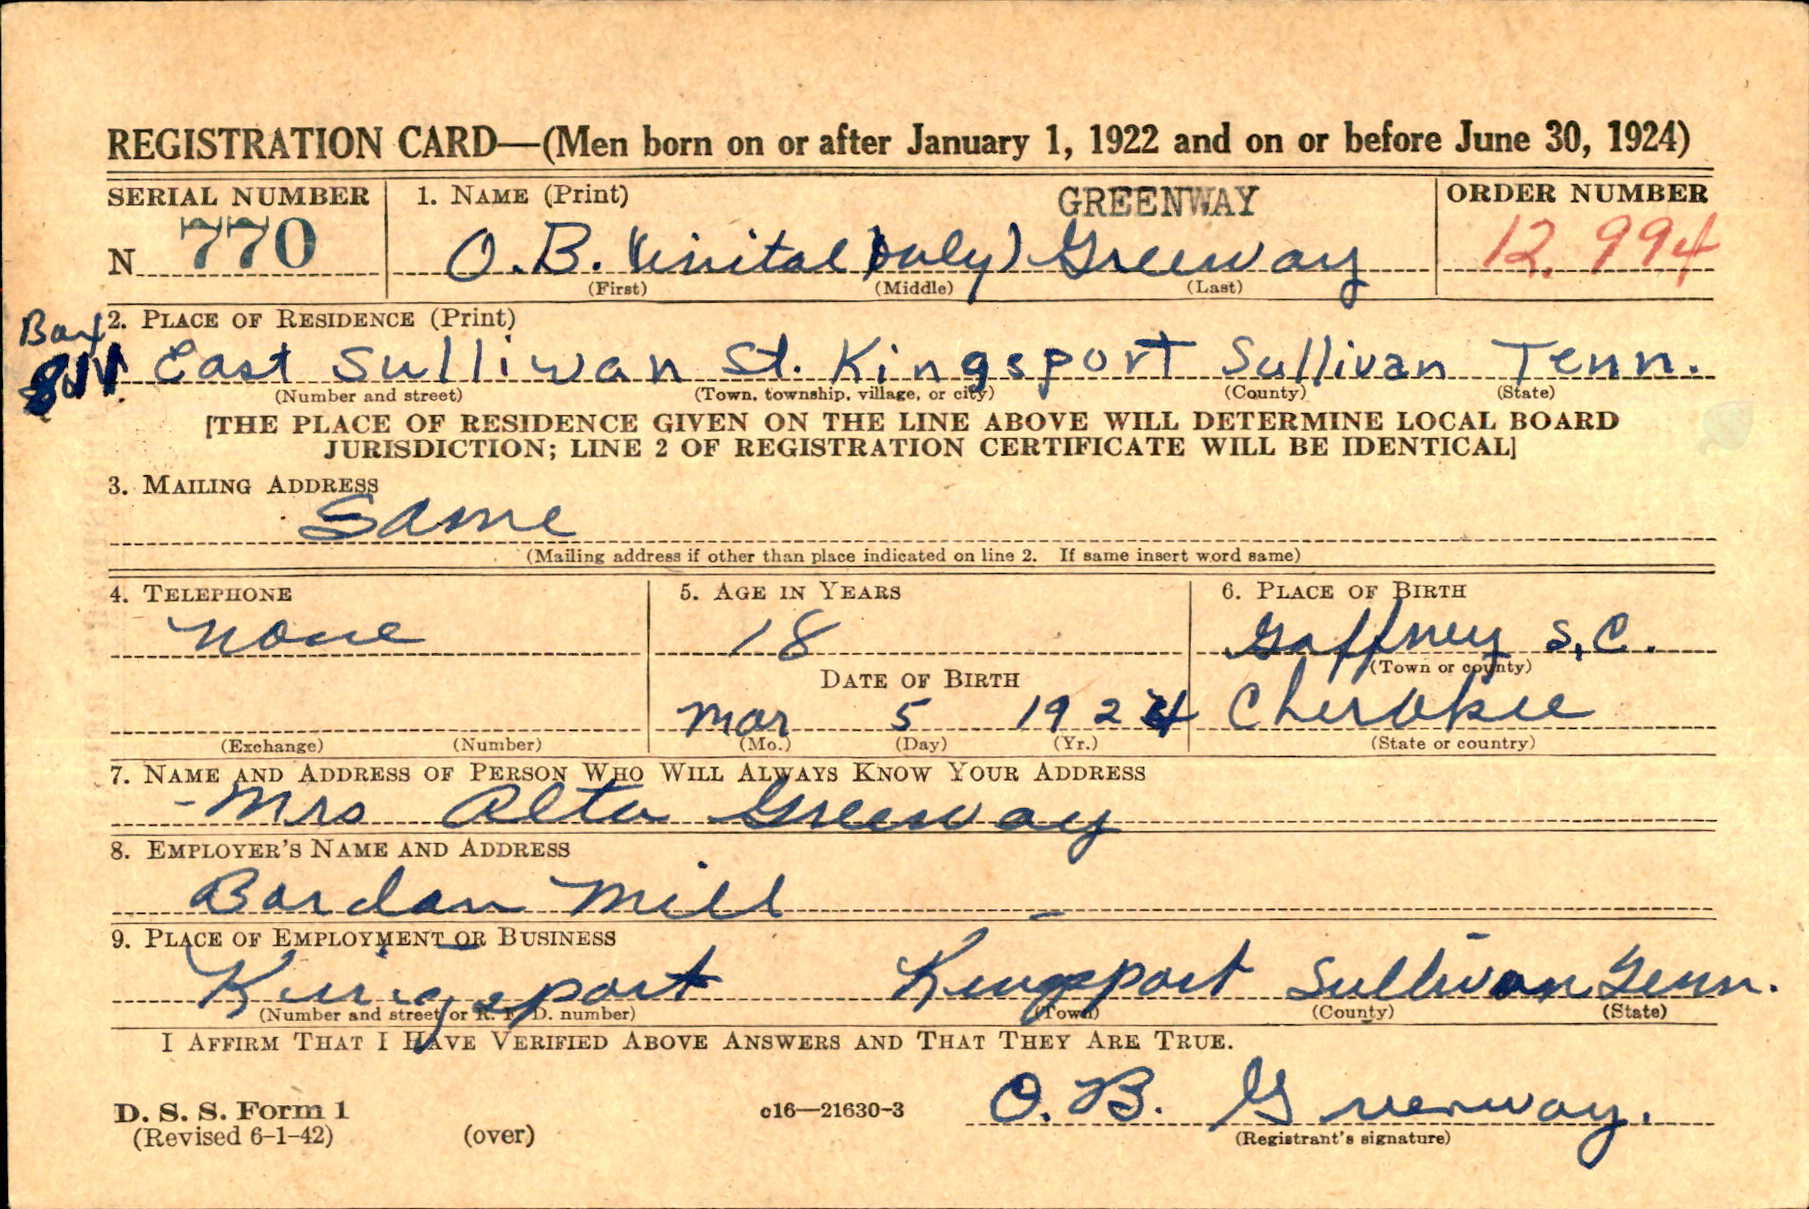 REGISTRATION CARD—(Men born on or after January 1, 1922 and on or before June 30, 1924)
SERIAL NUMBER 1. NAME (Print) GREENWAY ORDER NUMBER
N 770 O. B. (inital only) Greenway 12,994
(First) (Middle) (Last)
Box 2. PLACE OF RESIDENCE (Print)
East Sulliwan St. Kingsport Sullivan Tenn.
(Number and street) (Town, township, village, or city) (County) (State)
[THE PLACE OF RESIDENCE GIVEN ON THE LINE ABOVE WILL DETERMINE LOCAL BOARD
JURISDICTION; LINE 2 OF REGISTRATION CERTIFICATE WILL BE IDENTICAL]
3. MAILING ADDRESS
Same
(Mailing address if other than place indicated on line 2. If same insert word same)
4. TELEPHONE 5. AGE IN YEARS 6. PLACE OF BIRTH
None 18 Gaffney S.C.
(Town or county)
DATE OF BIRTH
Mar 5 1924 Cherokee
(Exchange) (Number) (Mo.) (Day) (Yr.) (State or country)
7. NAME AND ADDRESS OF PERSON WHO WILL ALWAYS KNOW YOUR ADDRESS
- Mrs Alta Greenway
8. EMPLOYER'S NAME AND ADDRESS
Bordan Mill
9. PLACE OF EMPLOYMENT OR BUSINESS
Kingsport Kingsport Sullivan Tenn.
(Number and street or R. F. D. number) (Town) (County) (State)
I AFFIRM THAT I HAVE VERIFIED ABOVE ANSWERS AND THAT THEY ARE TRUE.
D. S. S. Form 1 c16—21630-3 O. B. Greenway.
(Revised 6-1-42) (over) (Registrant's signature)